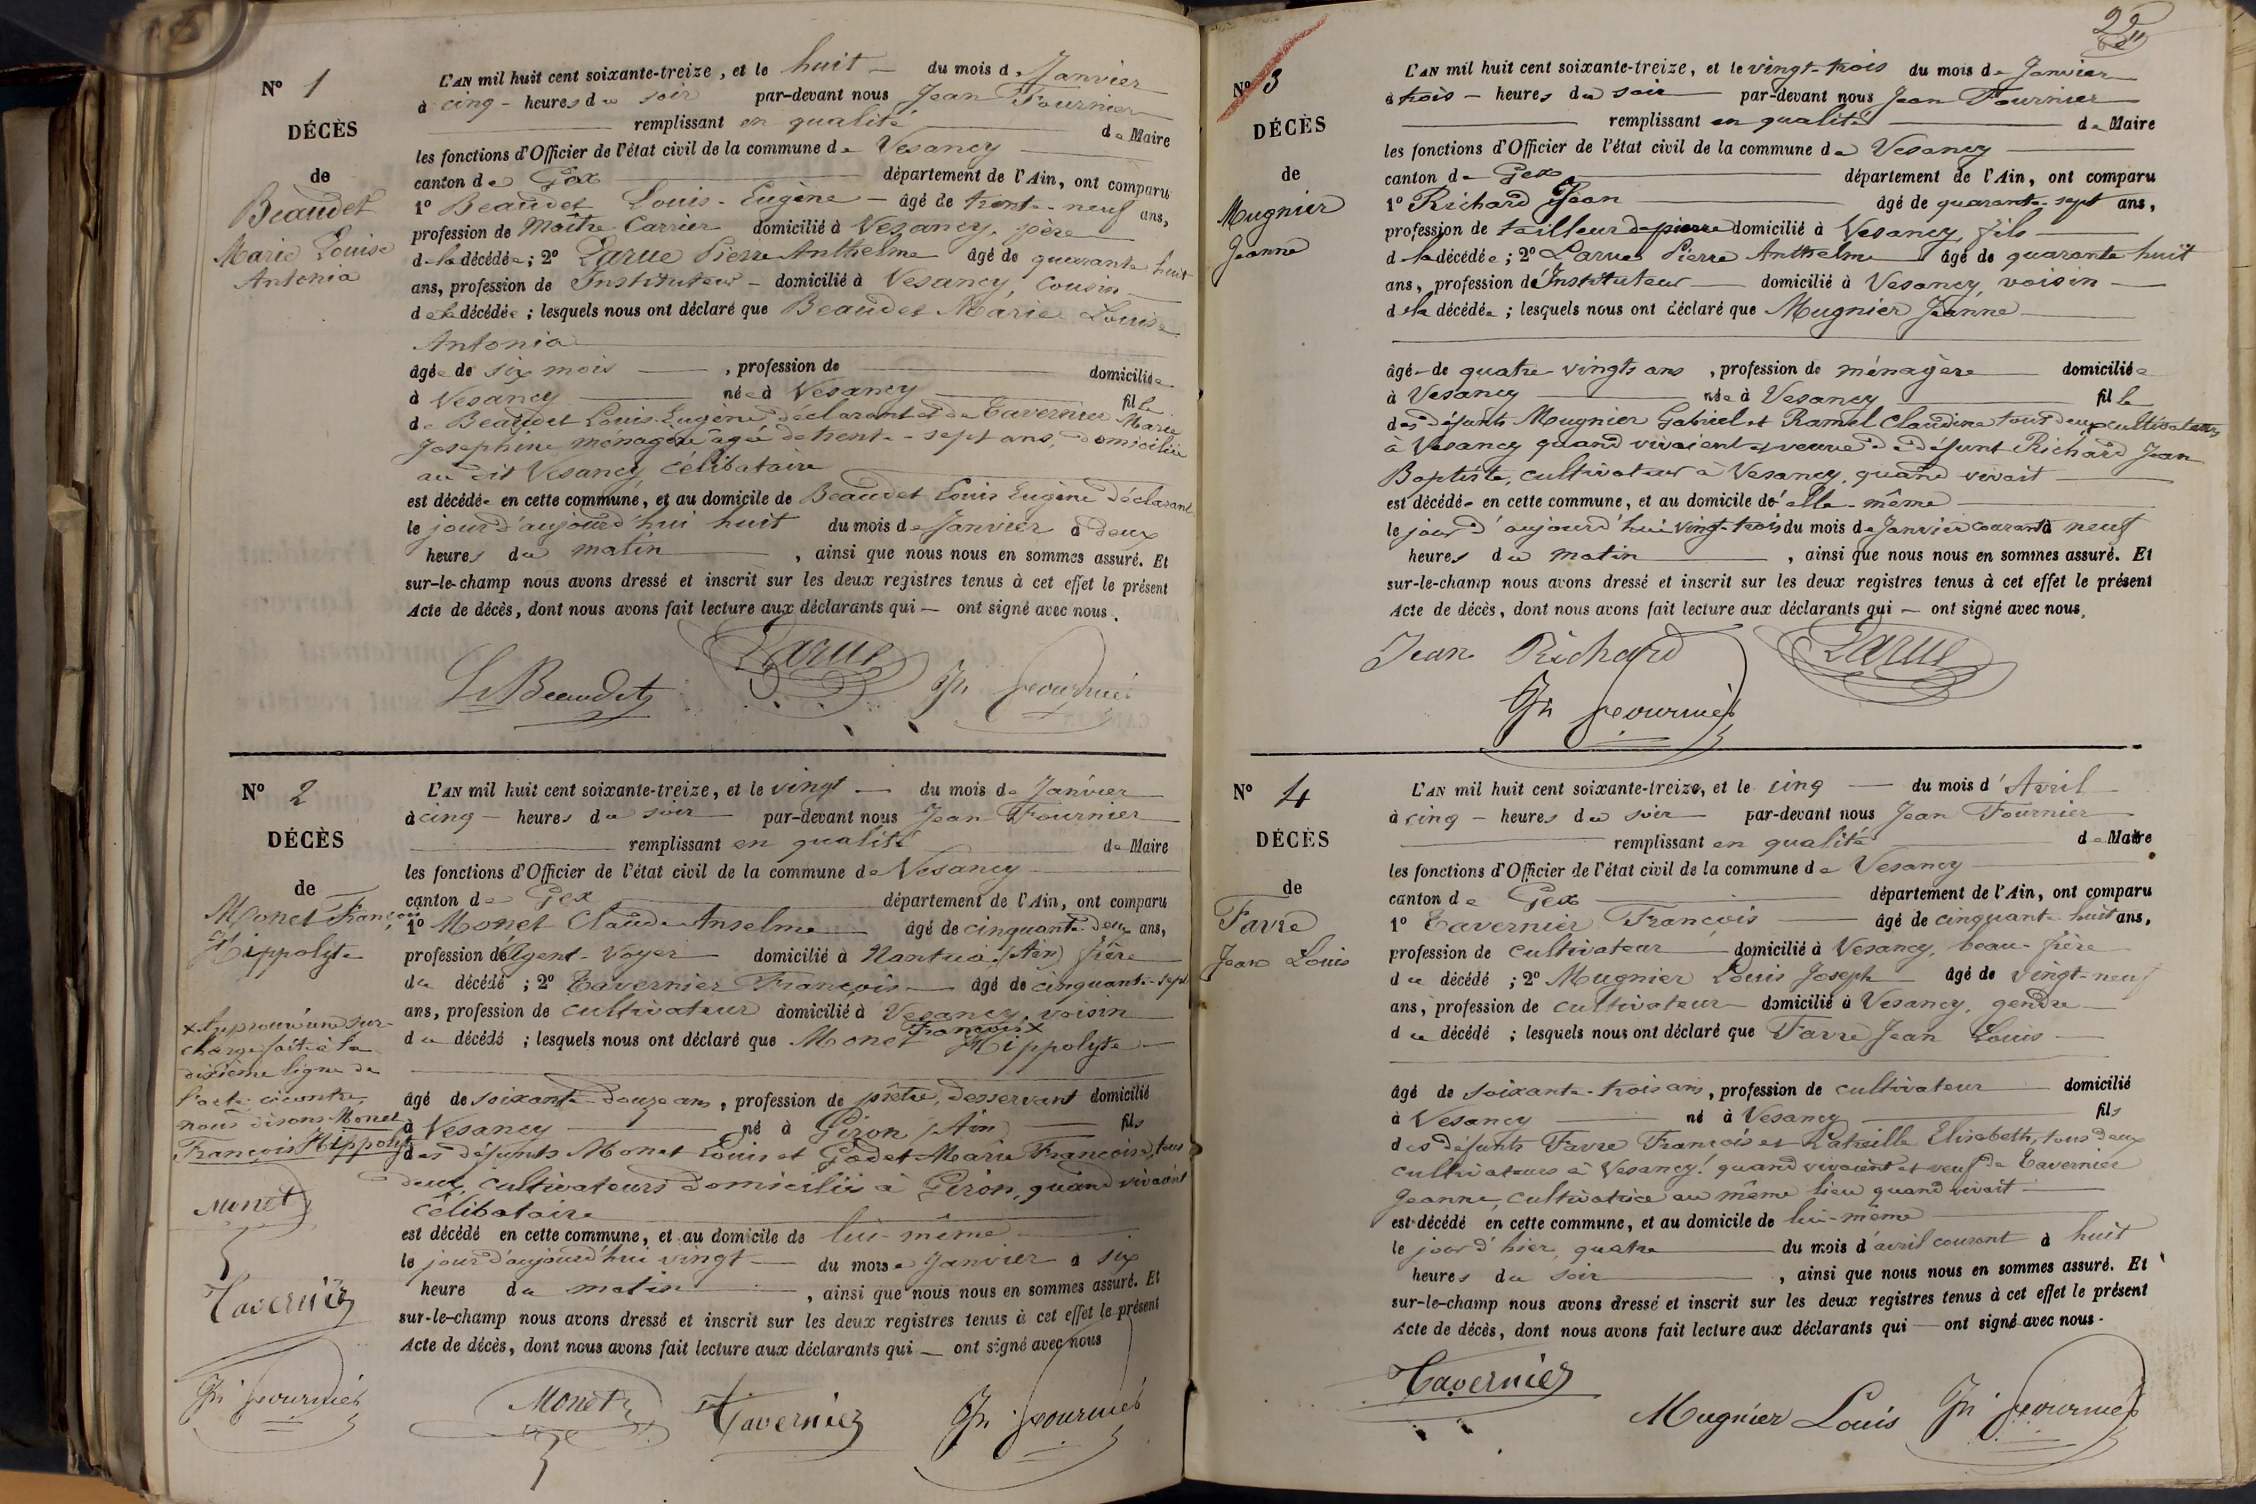 Nº 1
DÉCÈS
de
Beaudet
Marie Louise
Antonia
L'AN mil huit cent soixante-treize, et le huit du mois de Janvier
à cinq heures du soir par-devant nous Jean Fournier
remplissant en qualité de Maire
les fonctions d'Officier de l'état civil de la commune de Vesancy
canton de Gex département de l'Ain, ont comparu
1º Beaudet Louis-Eugène âgé de trente-neuf ans,
profession de Maître Carrier domicilié à Vesancy, père
de la décédée; 2º Larue Pierre Anthelme âgé de quarante huit
ans, profession de Instituteur domicilié à Vesancy, Cousin
de la décédée; lesquels nous ont déclaré que Beaudet Marie Louise
Antonia
âgée de six mois, profession de domiciliée
à Vesancy née à Vesancy fille
de Beaudet Louis Eugène déclarant et de Tavernier Marie
Josephine ménagère âgée de trente-sept ans, domiciliée
au dit Vesancy, célibataire
est décédée en cette commune, et au domicile de Beaudet Louis Eugène déclarant
le jour d'aujourd'hui huit du mois de Janvier à deux
heures du matin, ainsi que nous nous en sommes assuré. Et
sur-le-champ nous avons dressé et inscrit sur les deux registres tenus à cet effet le présent
Acte de décès, dont nous avons fait lecture aux déclarants qui — ont signé avec nous.
Larue
Ls Beaudet Jn Fournier
Nº 2
DÉCÈS
de
Monet François
Hippolyte
x Approuvé une sur-
charge faite à la
dixième ligne de
l'acte ci-contre,
nous disons Monet
François Hippolyte
Monet
Tavernier
Jn Fournier
L'AN mil huit cent soixante-treize, et le vingt du mois de Janvier
à cinq heures du soir par-devant nous Jean Fournier
remplissant en qualité de Maire
les fonctions d'Officier de l'état civil de la commune de Vesancy
canton de Gex département de l'Ain, ont comparu
1º Monet Claude Anselme âgé de cinquante-deux ans,
profession d'Agent-Voyer domicilié à Nantua (Ain) frère
du décédé; 2º Tavernier François âgé de cinquante-sept
ans, profession de cultivateur domicilié à Vesancy, voisin
du décédé; lesquels nous ont déclaré que Monet François x Hippolyte
âgé de soixante-douze ans, profession de prêtre, desservant domicilié
à Vesancy né à Giron (Ain) fils
des défunts Monet Louis et Godet Marie Françoise, tous
deux cultivateurs domiciliés à Giron, quand vivaient
célibataire
est décédé en cette commune, et au domicile de lui-même
le jour d'aujourd'hui vingt du mois de Janvier à six
heure du matin, ainsi que nous nous en sommes assuré. Et
sur-le-champ nous avons dressé et inscrit sur les deux registres tenus à cet effet le présent
Acte de décès, dont nous avons fait lecture aux déclarants qui — ont signé avec nous
Monet Tavernier Jn Fournier
22
Nº 3
DÉCÈS
de
Mugnier
Jeanne
L'AN mil huit cent soixante-treize, et le vingt-trois du mois de Janvier
à trois heures du soir par-devant nous Jean Fournier
remplissant en qualité de Maire
les fonctions d'Officier de l'état civil de la commune de Vesancy
canton de Gex département de l'Ain, ont comparu
1º Richard Jean âgé de quarante-sept ans,
profession de tailleur de pierre domicilié à Vesancy, fils
de la décédée; 2º Larue Pierre Anthelme âgé de quarante huit
ans, profession d'Instituteur domicilié à Vesancy, voisin
de la décédée; lesquels nous ont déclaré que Mugnier Jeanne
âgée de quatre-vingts ans, profession de ménagère domiciliée
à Vesancy née à Vesancy fille
des défunts Mugnier Gabriel et Ramel Claudine tous deux cultivateurs
à Vesancy quand vivaient et veuve de défunt Richard Jean
Baptiste, cultivateur à Vesancy, quand vivait
est décédée en cette commune, et au domicile d'elle-même
le jour d'aujourd'hui vingt-trois du mois de Janvier courant à neuf
heures du matin, ainsi que nous nous en sommes assuré. Et
sur-le-champ nous avons dressé et inscrit sur les deux registres tenus à cet effet le présent
Acte de décès, dont nous avons fait lecture aux déclarants qui — ont signé avec nous.
Jean Richard Larue
Jn Fournier
Nº 4
DÉCÈS
de
Favre
Jean Louis
L'AN mil huit cent soixante-treize, et le cinq du mois d'Avril
à cinq heures du soir par-devant nous Jean Fournier
remplissant en qualité de Maire
les fonctions d'Officier de l'état civil de la commune de Vesancy
canton de Gex département de l'Ain, ont comparu
1º Tavernier François âgé de cinquante-huit ans,
profession de cultivateur domicilié à Vesancy, beau-frère
du décédé; 2º Mugnier Louis Joseph âgé de vingt-neuf
ans, profession de cultivateur domicilié à Vesancy, gendre
du décédé; lesquels nous ont déclaré que Favre Jean Louis
âgé de soixante-trois ans, profession de cultivateur domicilié
à Vesancy né à Vesancy fils
des défunts Favre François et Latreille Elisabeth, tous deux
cultivateurs à Vesancy, quand vivaient et veuf de Tavernier
Jeanne, cultivatrice au même lieu quand vivait
est décédé en cette commune, et au domicile de lui-même
le jour d'hier, quatre du mois d'avril courant à huit
heures du soir, ainsi que nous nous en sommes assuré. Et
sur-le-champ nous avons dressé et inscrit sur les deux registres tenus à cet effet le présent
Acte de décès, dont nous avons fait lecture aux déclarants qui — ont signé avec nous.
Tavernier
Mugnier Louis Jn Fournier